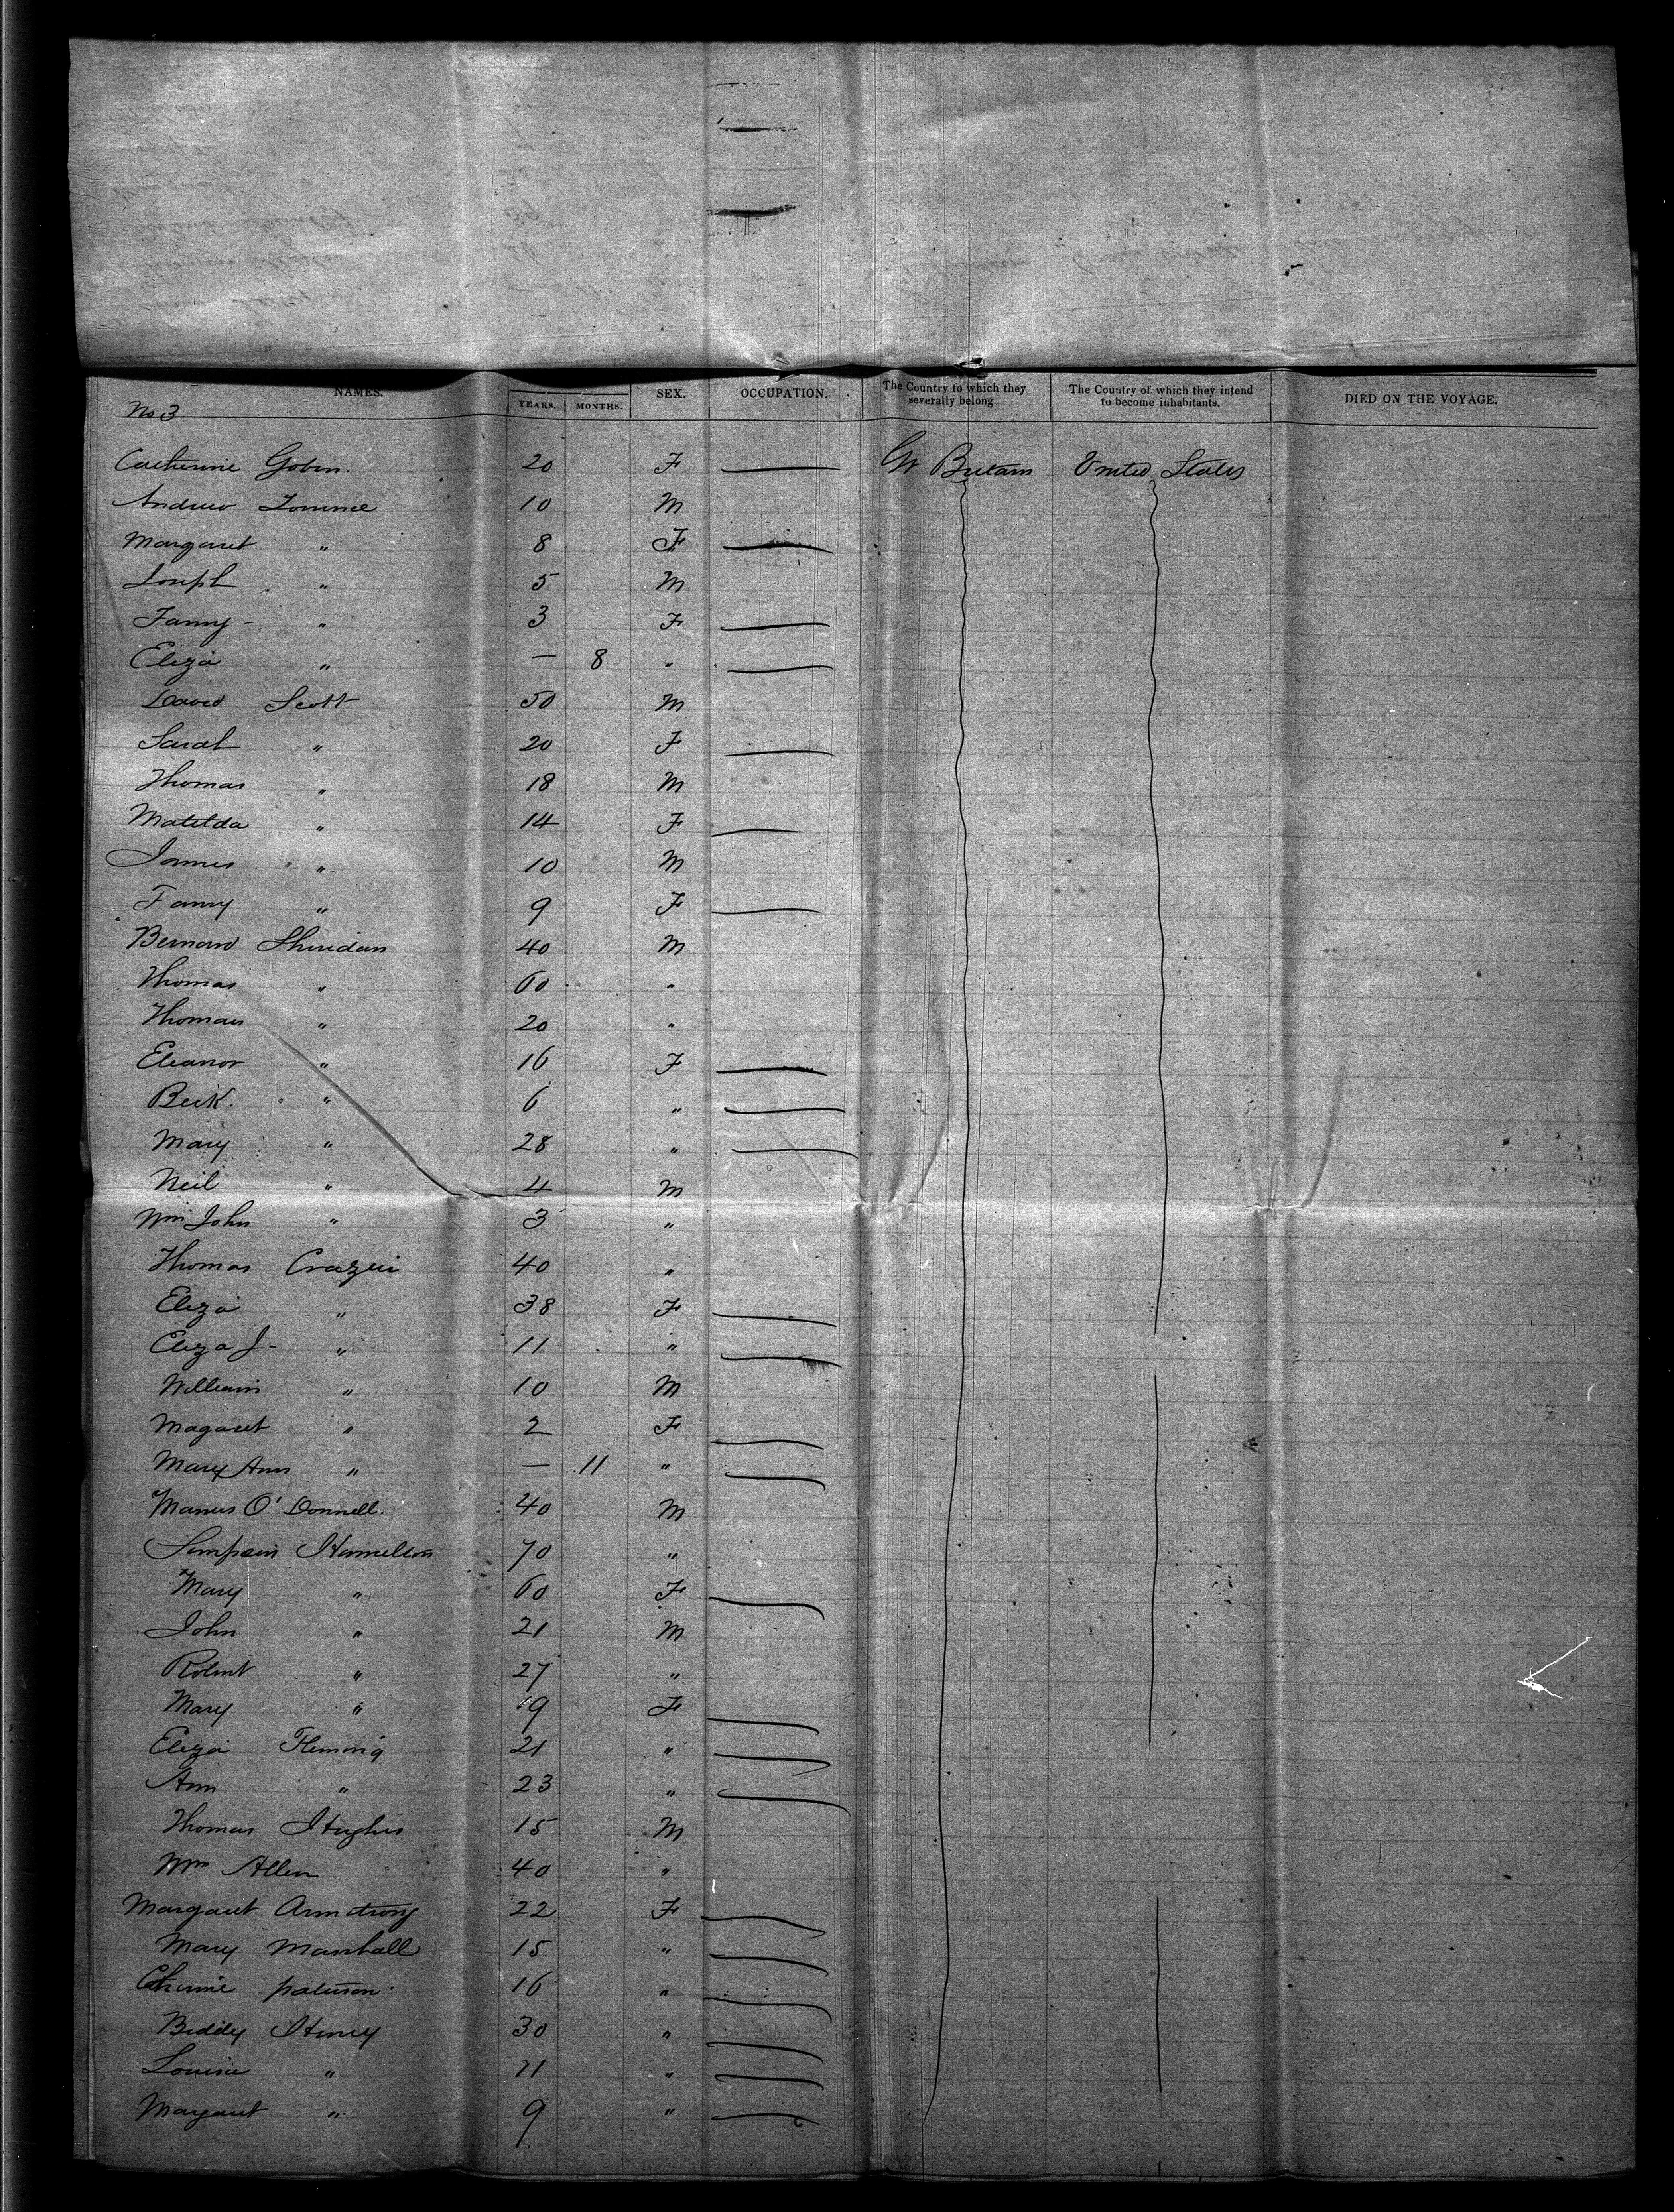 NAMES. SEX. OCCUPATION. The Country to which they severally belong The Country of which they intend to become inhabitants. DIED ON THE VOYAGE.
No 3 YEARS. MONTHS.
Catherine 20 F Gt Britain United States
Andrew 10 M
Margaret " 8 F
Joseph " 5 M
Fanny - " 3 F
Eliza " — 8 "
David Scott 50 M
Sarah " 20 F
Thomas " 18 M
Matilda " 14 F
James " 10 M
Fanny " 9 F
Bernard Sheridan 40 M
Thomas " 60 "
Thomas " 20 "
Eleanor " 16 F
Beck. " 6 "
Mary " 28 "
Neil " 4 M
Wm John " 3 "
Thomas 40 "
Eliza " 38 F
Eliza J- " 11 "
William " 10 M
Magaret " 2 F
Mary Ann " — 11 "
Manus O'Donnell. 40 M
Simpson Hamilton 70 "
Mary " 60 F
John " 21 M
Robert " 27 "
Mary " 19 F
Eliza Fleming 21 "
Ann " 23 "
Thomas Hughes 15 M
Wm Allen 40 "
Margaret Armstrong 22 F
Mary Marshall 15 "
paterson 16 "
Biddy Henry 30 "
Louisa " "
Margaret " 9 "